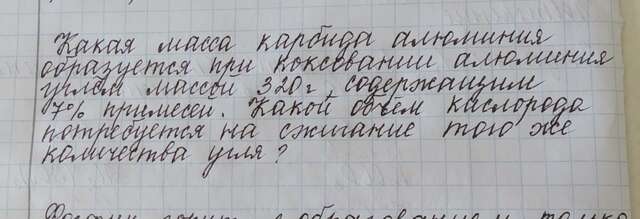 Какая масса карбида алюминия
образуется при коксовании алюминия
углём массой 320г, содержащим
7% примесей. Какой объём кислорода
потребуется на сжигание того же
количества угля?